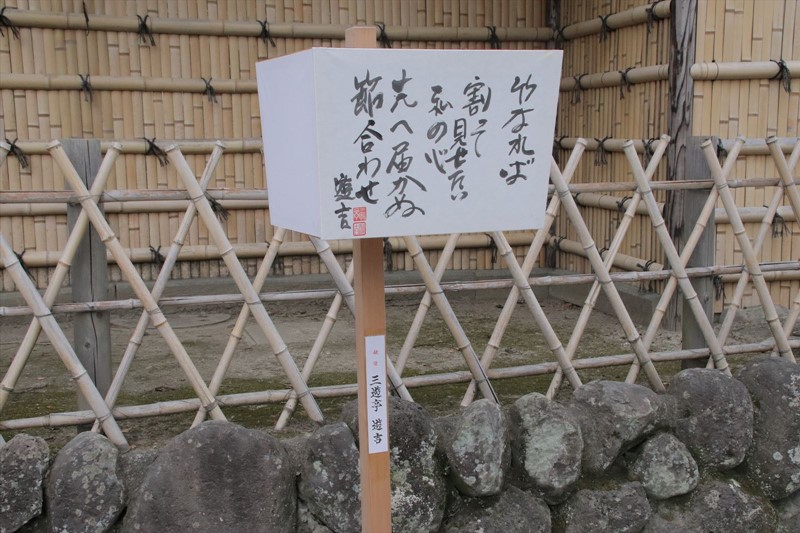 竹なれば
割って見せたい
私の心
先へ届かぬ
節合わせ
遊吉
三遊亭 遊吉